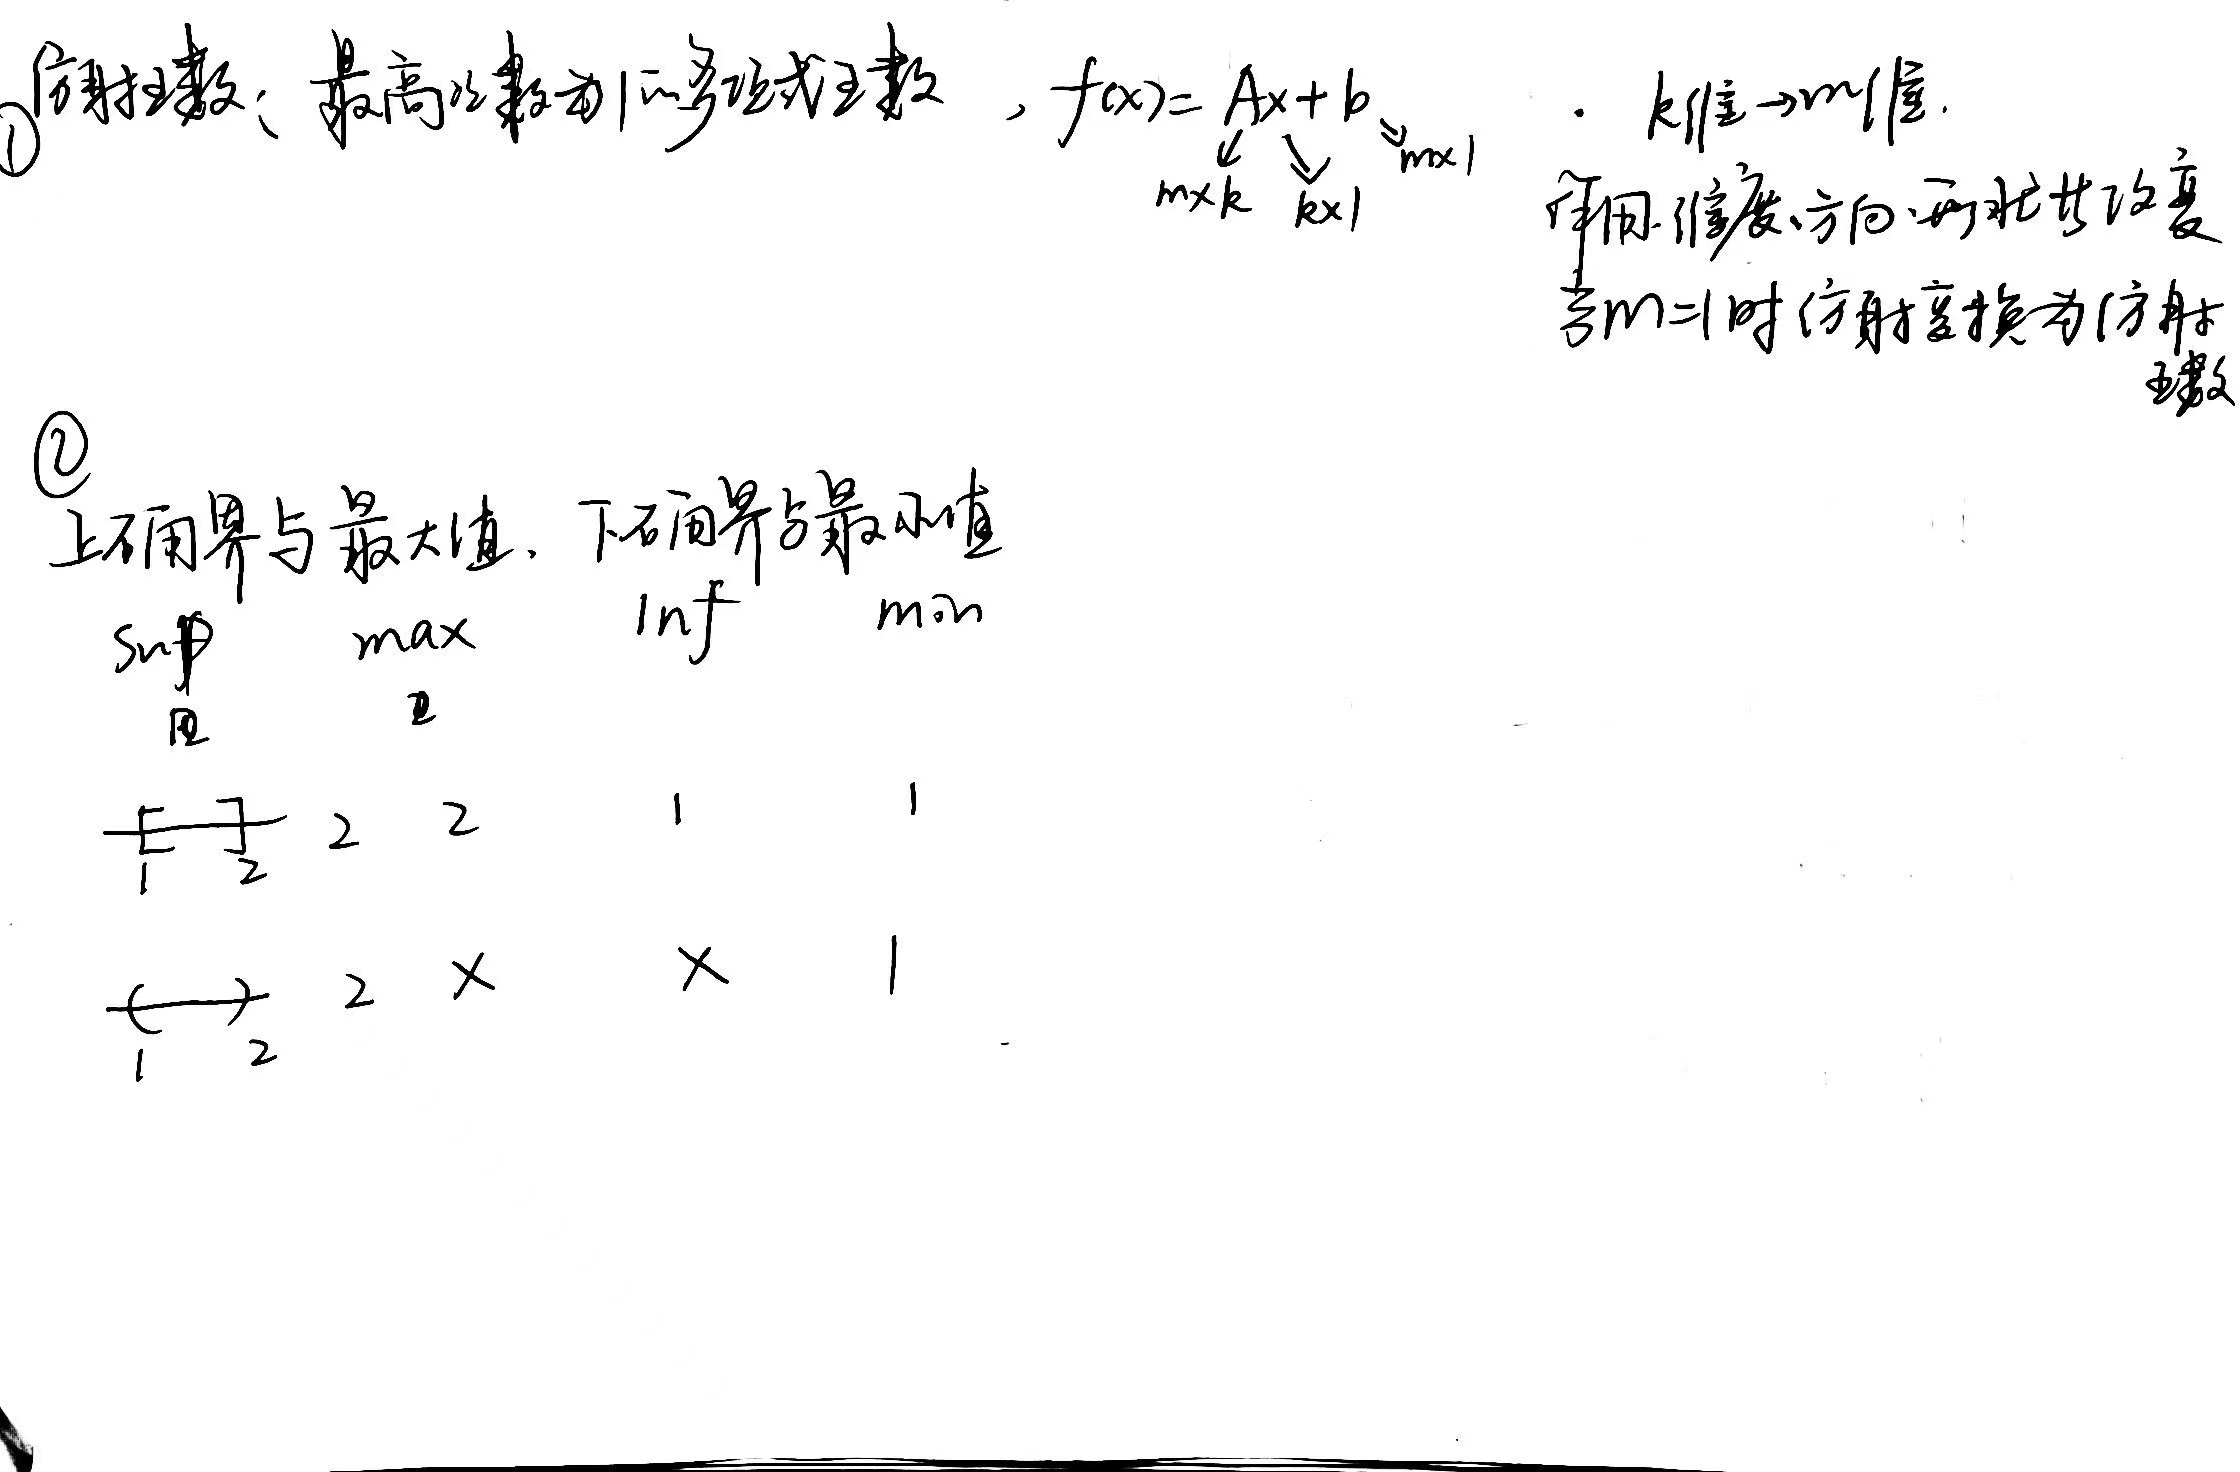 ① 仿射函数：最高次数为1的多项式函数，f(x)=Ax+b . k维→m维.
m×k k×1 m×1
作用.维度、方向、形状共改变
当m=1时仿射变换为仿射
函数
②
上确界与最大值、下确界与最小值
sup max inf min
[ ] 2 2 1 1
1 2
( ) 2 × × 1
1 2